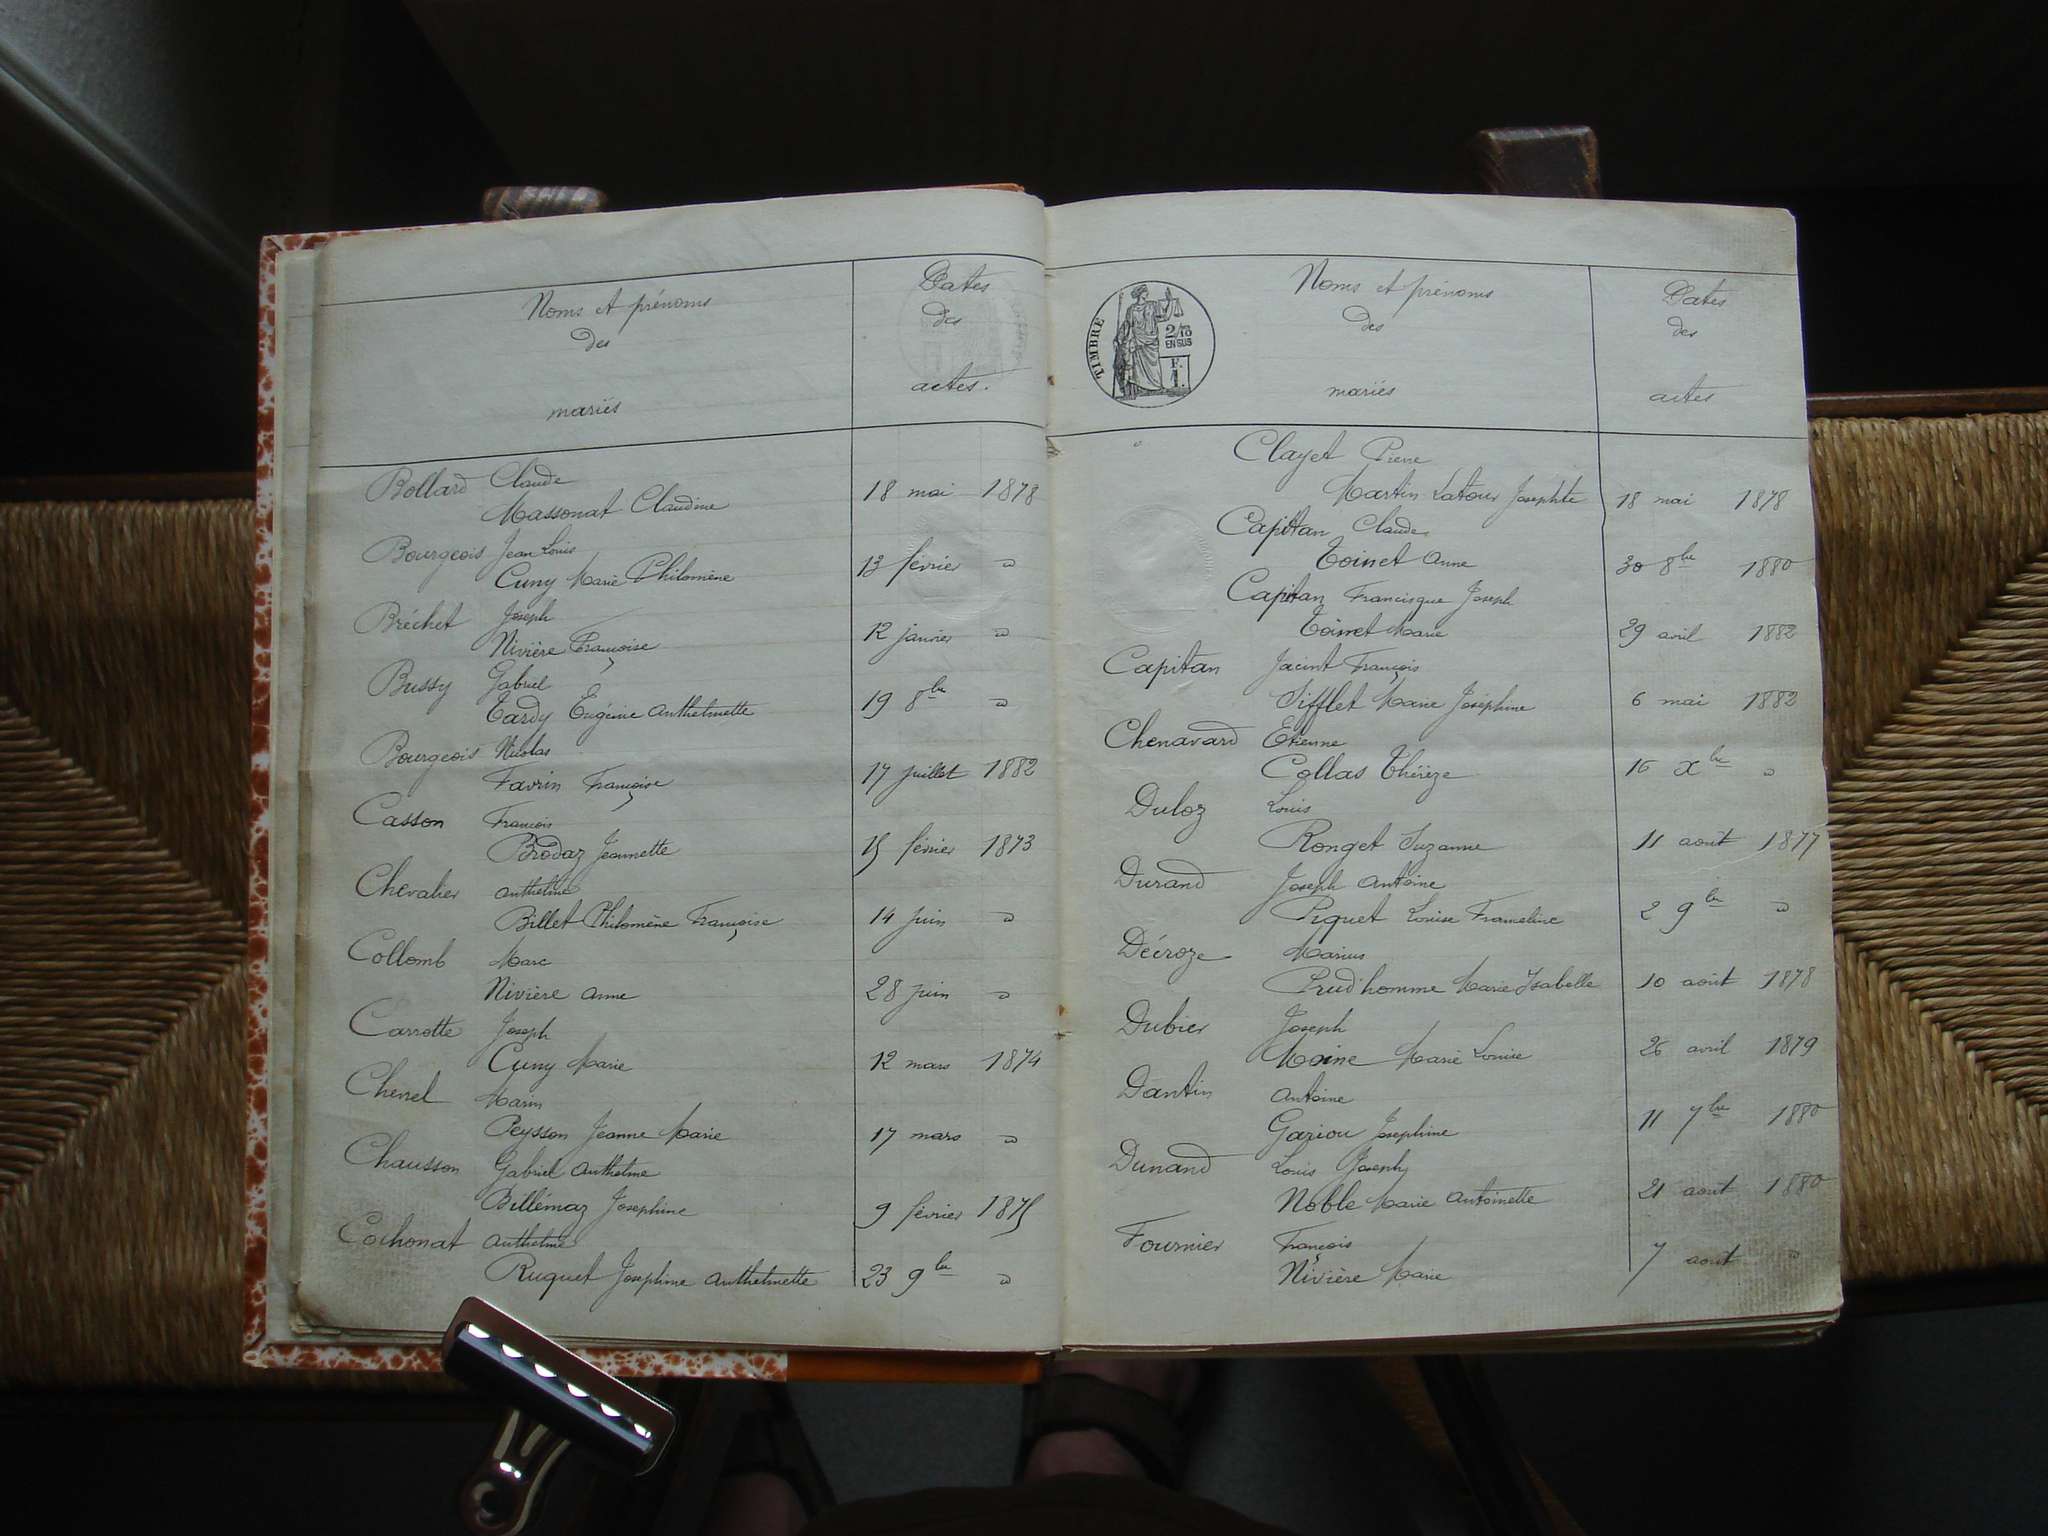 Noms et prénoms
des
mariés
Dates
des
actes.
Bollard Claude
Massonat Claudine 18 mai 1878
Bourgeois Jean Louis
Cuny Marie Philomène 13 février "
Bréchet Joseph
Nivière Françoise 12 janvier "
Bussy Gabriel
Tardy Eugénie Anthelmette 19 8bre "
Bourgeois Nicolas
Favrin Françoise 17 juillet 1882
Casson François
Brodaz Jeannette 15 février 1873
Chevalier Anthelme
Billet Philomène Françoise 14 juin "
Collomb Marc
Nivière Anne 28 juin "
Carrotte Joseph
Cuny Marie 12 mars 1874
Chenel Marin
Peysson Jeanne Marie 17 mars "
Chausson Gabriel Anthelme
Billémaz Josephine 9 février 1875
Cochonat Anthelme
Ruquet Josephine Anthelmette 23 9bre "
TIMBRE
2/10
EN SUS
F.
1.
Noms et prénoms
des
mariés
Dates
des
actes
Clayet Pierre
Martin Latour Josephte 18 mai 1878
Capitan Claude
Toinet Anne 30 8bre 1880
Capitan Francisque Joseph
Toinet Marie 29 avril 1882
Capitan Jacint François
Sifflet Marie Joséphine 6 mai 1882
Chenavard Etienne
Collas Thérèze 16 Xbre "
Duloz Louis
Ronget Suzanne 11 aout 1877
Durand Joseph Antoine
Piquet Louise Frameline 2 9bre "
Décroze Marius
Prud'homme Marie Isabelle 10 août 1878
Dubier Joseph
Moine Marie Louise 26 avril 1879
Dantin Antoine
Gariou Josephine 11 7bre 1880
Dunand Louis Joseph
Noble Marie Antoinette 21 aout 1880
Fournier François
Nivière Marie 7 aout "